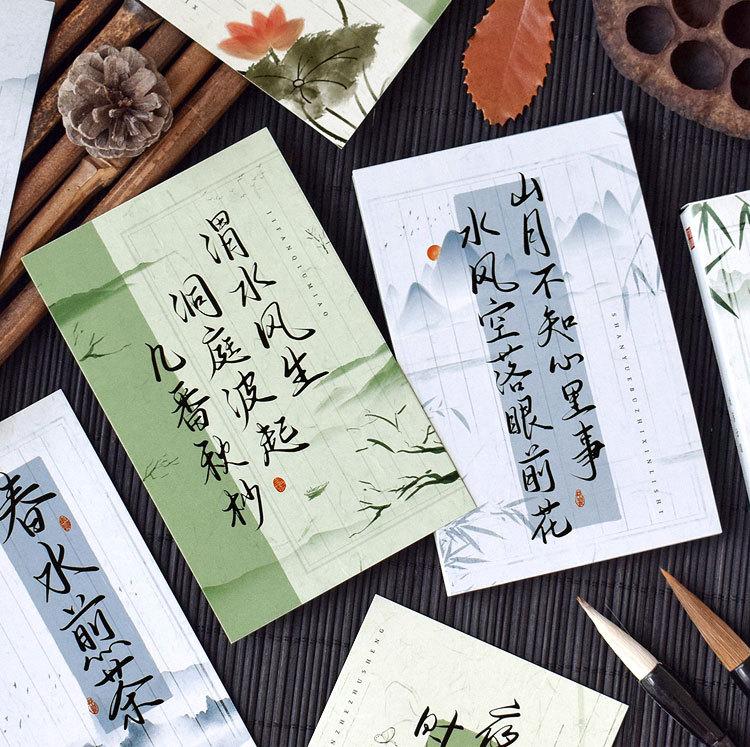 渭水风生
洞庭波起
几番秋杪
JIFANQIUMIAO
山月不知心里事
水风空落眼前花
SHANYUEBUZHIXINLISHI
春水煎茶
NZHEZHUSHENG
夜
时